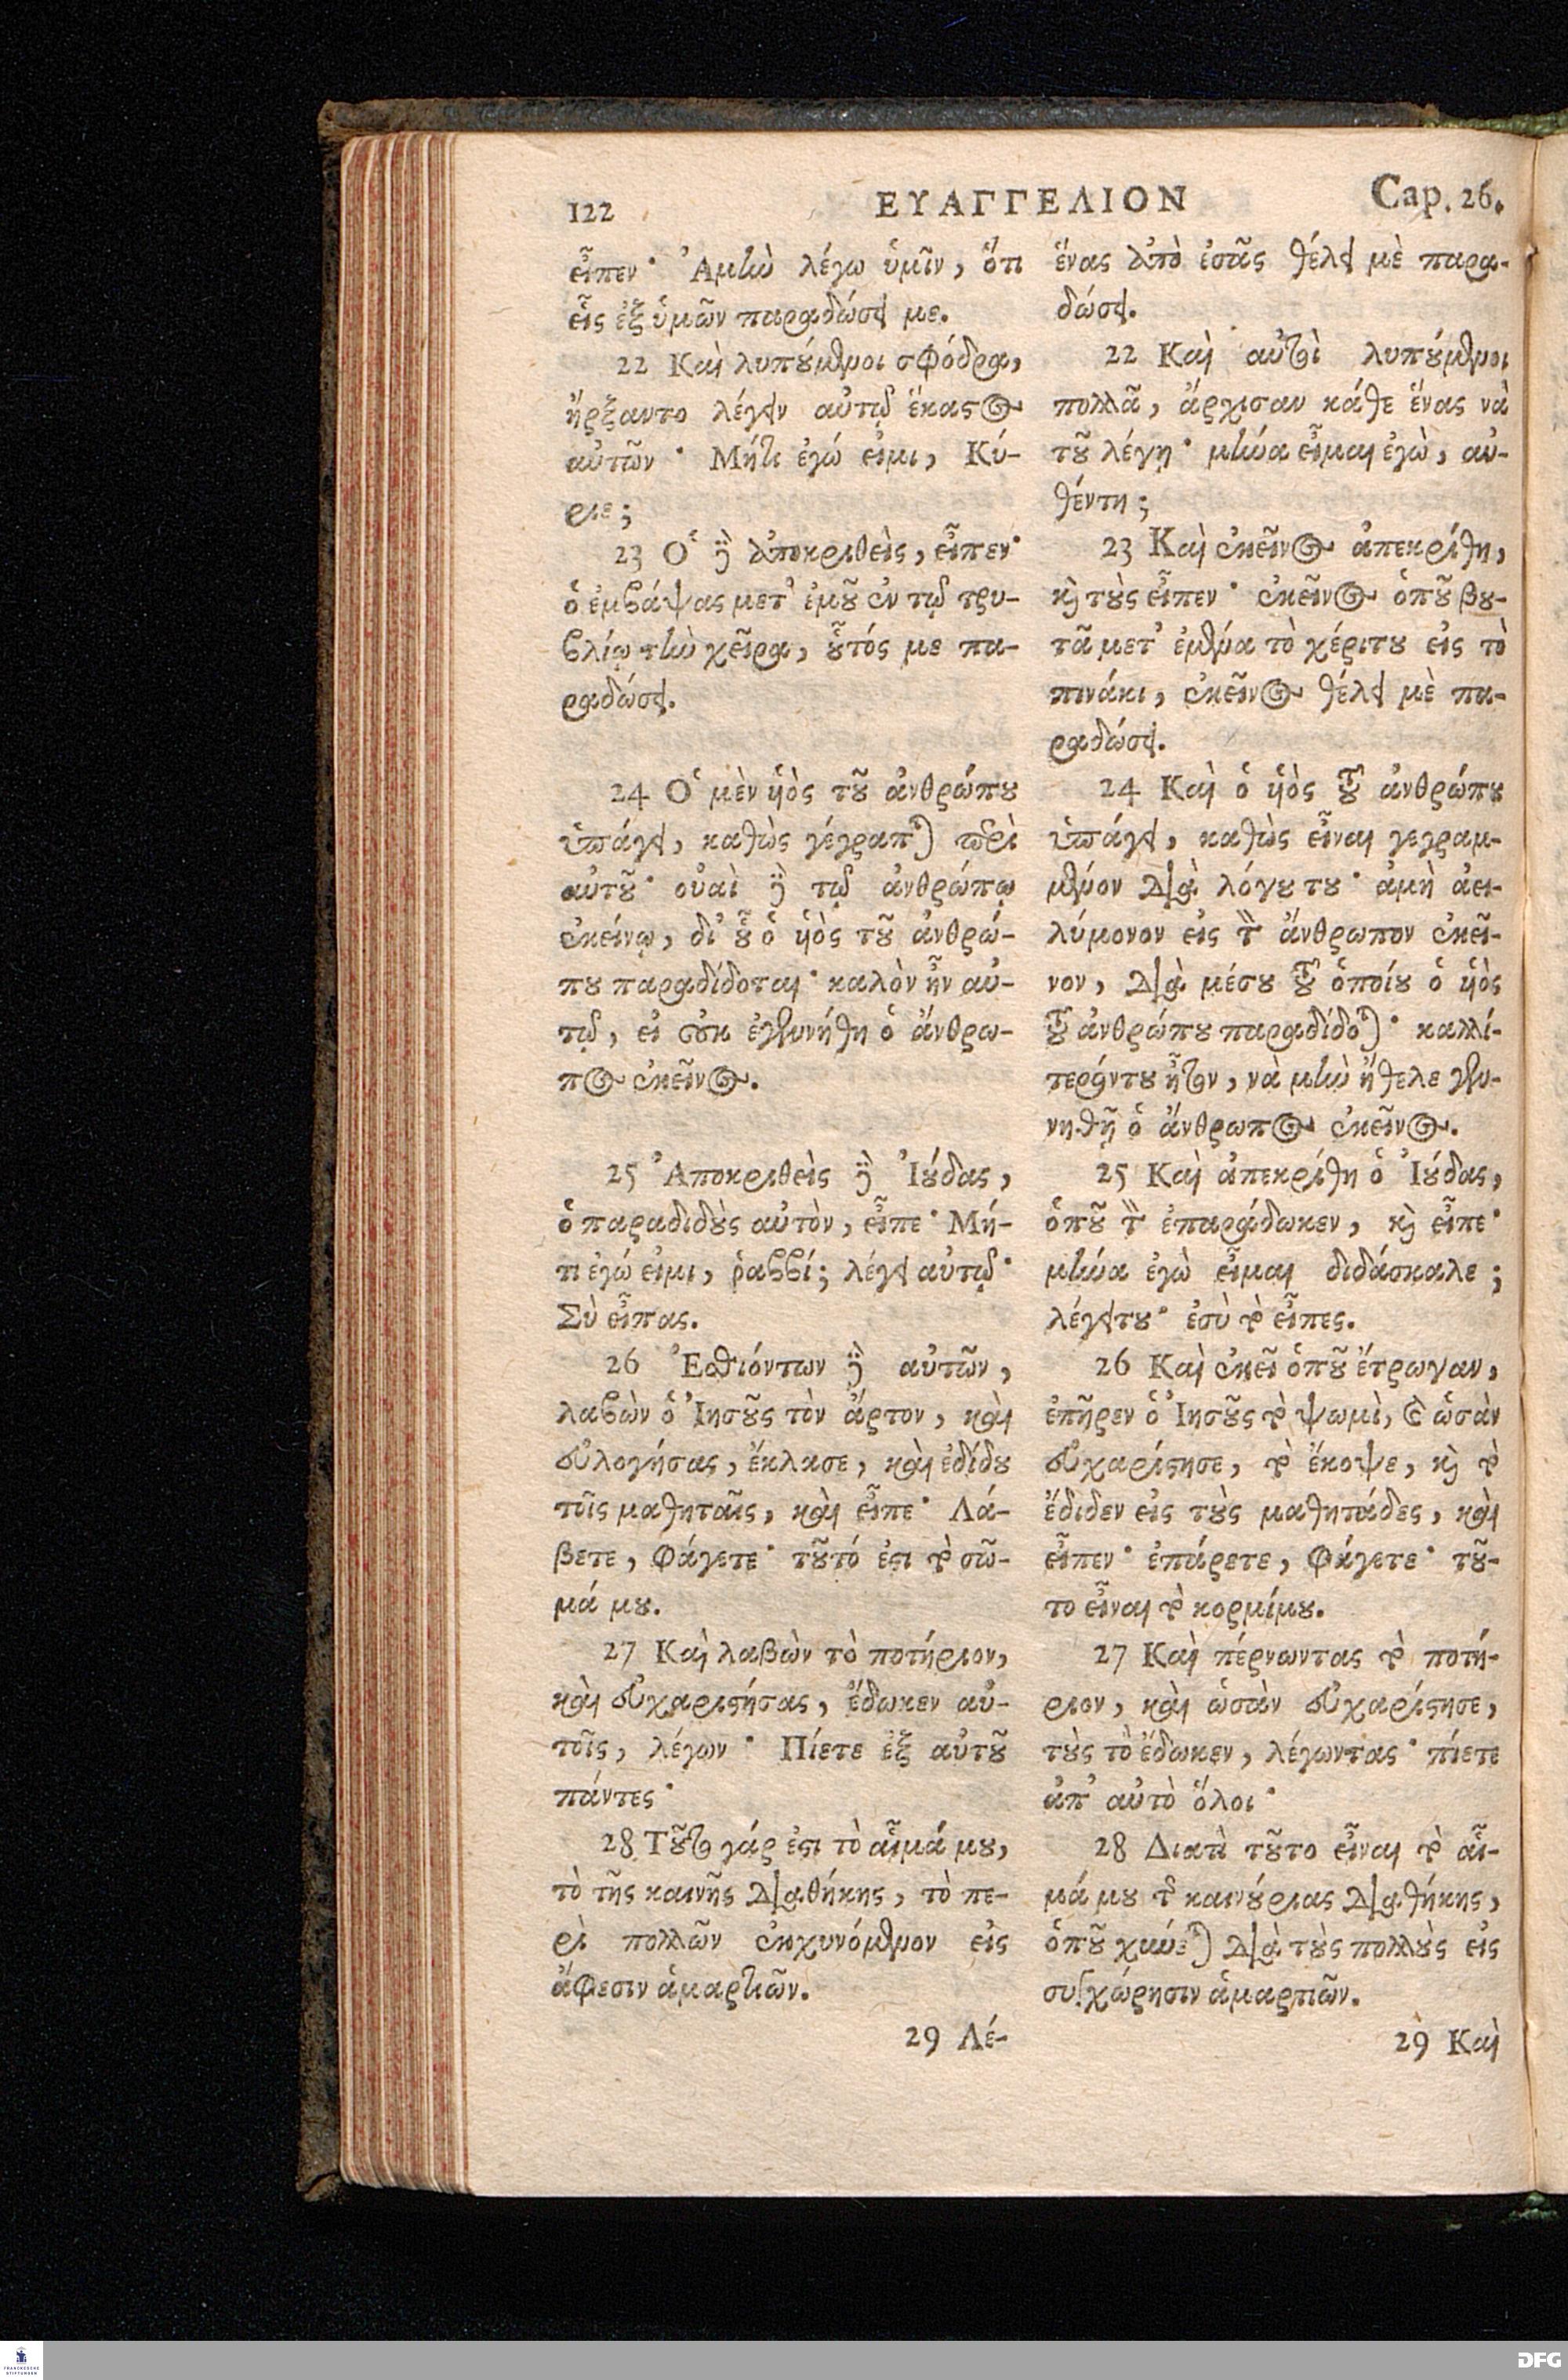 122 ΕΥΑΓΓΕΛΙΟΝ Cap. 26.
εἶπεν· Ἀμὴν λέγω ὑμῖν, ὅτι
εἷς ἐξ ὑμῶν παραδώσει με.
22 Καὶ λυπούμενοι σφόδρα,
ἤρξαντο λέγειν αὐτῷ ἕκαστος
αὐτῶν· Μήτι ἐγώ εἰμι, Κύ-
ριε;
23 Ὁ δὲ ἀποκριθεὶς, εἶπεν·
ὁ ἐμβάψας μετ' ἐμοῦ ἐν τῷ τρυ-
βλίῳ τὴν χεῖρα, οὗτός με πα-
ραδώσει.
24 Ὁ μὲν υἱὸς τοῦ ἀνθρώπου
ὑπάγει, καθὼς γέγραπται περὶ
αὐτοῦ· οὐαὶ δὲ τῷ ἀνθρώπῳ
ἐκείνῳ, δι' οὗ ὁ υἱὸς τοῦ ἀνθρώ-
που παραδίδοται· καλὸν ἦν αὐ-
τῷ, εἰ οὐκ ἐγεννήθη ὁ ἄνθρω-
πος ἐκεῖνος.
25 Ἀποκριθεὶς δὲ Ἰούδας,
ὁ παραδιδοὺς αὐτὸν, εἶπε· Μή-
τι ἐγώ εἰμι, ῥαββί; λέγει αὐτῷ·
Σὺ εἶπας.
26 Ἐσθιόντων δὲ αὐτῶν,
λαβὼν ὁ Ἰησοῦς τὸν ἄρτον, καὶ
εὐλογήσας, ἔκλασε, καὶ ἐδίδου
τοῖς μαθηταῖς, καὶ εἶπε· Λά-
βετε, φάγετε· τοῦτό ἐστι τὸ σῶ-
μά μου.
27 Καὶ λαβὼν τὸ ποτήριον,
καὶ εὐχαριστήσας, ἔδωκεν αὐ-
τοῖς, λέγων· Πίετε ἐξ αὐτοῦ
πάντες·
28 Τοῦτο γάρ ἐστι τὸ αἷμά μου,
τὸ τῆς καινῆς διαθήκης, τὸ πε-
ρὶ πολλῶν ἐκχυνόμενον εἰς
ἄφεσιν ἁμαρτιῶν.
29 Λέ-
ἕνας ἀπὸ ἐσᾶς θέλει μὲ παρα-
δώσει.
22 Καὶ αὐτοὶ λυπούμενοι
πολλᾶ, ἄρχισαν κάθε ἕνας νὰ
τοῦ λέγῃ· μήνα εἶμαι ἐγὼ, αὐ-
θέντη;
23 Καὶ ἐκεῖνος ἀπεκρίθη,
καὶ τοὺς εἶπεν· ἐκεῖνος ὁποῦ βου-
τᾶ μετ' ἐμένα τὸ χέριτου εἰς τὸ
πινάκι, ἐκεῖνος θέλει μὲ πα-
ραδώσει.
24 Καὶ ὁ υἱὸς τοῦ ἀνθρώπου
ὑπάγει, καθὼς εἶναι γεγραμ-
μένον διὰ λόγου του· ἀμὴ ἀει-
λύμονον εἰς τὸν ἄνθρωπον ἐκεῖ-
νον, διὰ μέσου τοῦ ὁποίου ὁ υἱὸς
τοῦ ἀνθρώπου παραδίδοται· καλλί-
τεράντου ἦτον, νὰ μὴν ἤθελε γεν-
νηθῇ ὁ ἄνθρωπος ἐκεῖνος.
25 Καὶ ἀπεκρίθη ὁ Ἰούδας,
ὁποῦ τὸν ἐπαράδωκεν, καὶ εἶπε·
μήνα ἐγὼ εἶμαι διδάσκαλε;
λέγειτου· ἐσὺ τὸ εἶπες.
26 Καὶ ἐκεῖ ὁποῦ ἔτρωγαν,
ἐπῆρεν ὁ Ἰησοῦς τὸ ψωμὶ, καὶ ὡσὰν
εὐχαρίστησε, τὸ ἔκοψε, καὶ τὸ
ἔδιδεν εἰς τοὺς μαθητάδες, καὶ
εἶπεν· ἐπάρετε, φάγετε· τοῦ-
το εἶναι τὸ κορμίμου.
27 Καὶ πέρνωντας τὸ ποτή-
ριον, καὶ ὡσὰν εὐχαρίστησε,
τοὺς τὸ ἔδωκεν, λέγωντας· πίετε
ἀπ' αὐτὸ ὅλοι·
28 Διατὶ τοῦτο εἶναι τὸ αἷ-
μά μου τῆς καινούριας διαθήκης,
ὁποῦ χύνεται διὰ τοὺς πολλοὺς εἰς
συγχώρησιν ἁμαρτιῶν.
29 Καὶ
FRANCKESCHE STIFTUNGEN
DFG